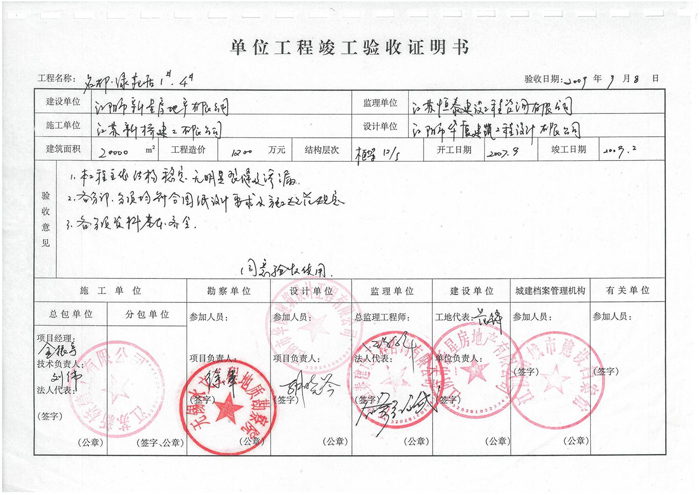 单位工程竣工验收证明书
工程名称: 名都·绿苑居1#.4# 验收日期: 2009 年 9 月 8 日
建设单位 江阴市新 房地产有限公司 监理单位 江苏恒泰建设工程咨询有限公司
施工单位 江苏新桥建工有限公司 设计单位 江阴市华 建筑工程设计有限公司
建筑面积 20000 m² 工程造价 1200 万元 结构层次 12/5 开工日期 2007.9 竣工日期 2009.2
验收意见
1.本工程主体结构稳定,无明显裂缝及渗漏
2.各分部、分项均符合图纸设计要求及 规范规定
3.各项资料基本齐全
同意验收使用.
施工单位 勘察单位 设计单位 监理单位 建设单位 城建档案管理机构 有关单位
总包单位 分包单位 参加人员: 参加人员: 总监理工程师: 工地代表: 参加人员: 参加人员:
项目经理:
技术负责人: 项目负责人: 项目负责人: 法人代表: 单位负责人:
刘伟
法人代表:
(签字) (签字) (签字) (签字) (签字) (签字) (签字)
(公章) (签字、公章) (公章) (公章) (公章) (公章) (公章) (公章)